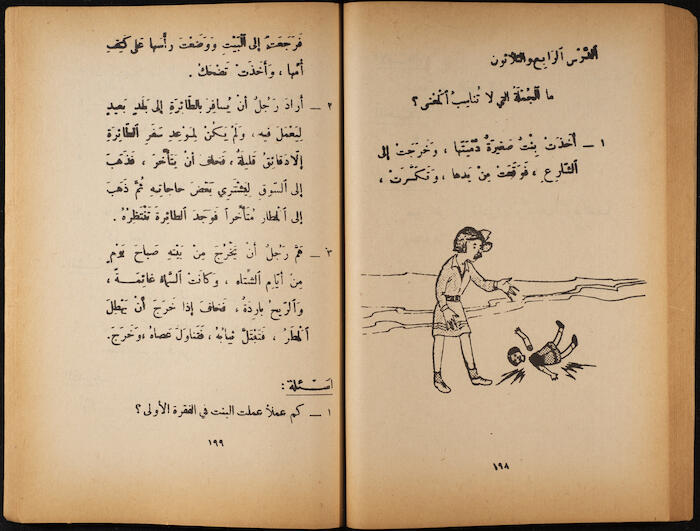 الدَّرْسُ الرَّابِعُ والثَّلاثون
ما الجُمْلَةُ التي لا تُناسِبُ المعْنى ؟
١ ــ أَخَذَتْ بِنْتٌ صَغيرَةٌ دُمْيَتَها ، وَخَرَجَتْ إلى
الشَّارِعِ ، فَوَقَعَتْ مِنْ يَدِها ، وَتَكَسَّرَتْ ،
١٩٨
فَرَجَعَتْ إلى البَيْتِ وَوَضَعَتْ رأسَها عَلى كَتِفِ
أُمِّها ، وَأَخَذَتْ تَضْحَكُ .
٢ ــ أرادَ رَجُلٌ أنْ يُسافِرَ بِالطّائِرَةِ إلى بَلَدٍ بَعيدٍ
لِيَعْمَلَ فيه ، وَلَمْ يَكُنْ لِمَوْعِدِ سَفَرِ الطّائِرَةِ
إلّا دَقائِقُ قَليلَةٌ ، فَخافَ أنْ يَتَأَخَّرَ ، فَذَهَبَ
إلى السّوقِ لِيَشْتَرِيَ بَعْضَ حاجاتِهِ ثُمَّ ذَهَبَ
إلى المطارِ مُتَأَخِّراً فَوَجَدَ الطائِرَةَ تَنْتَظِرُهُ .
٣ ــ هَمَّ رَجُلٌ أنْ يَخْرُجَ مِنْ بَيْتِهِ صَباحَ يَوْمٍ
مِنْ أيّامِ الشِّتاءِ ، وَكانَتْ السَّماءُ غائِمَةً ،
وَالرّيحُ بارِدَةً ، فَخافَ إذا خَرَجَ أنْ يَهْطِلَ
المطَرُ ، فَتَبْتَلَّ ثِيابُهُ ، فَتَناوَلَ عَصاهُ وَخَرَجَ .
أسْئلة :
١ ــ كم عملاً عملت البنت في الفقرة الأولى ؟
١٩٩